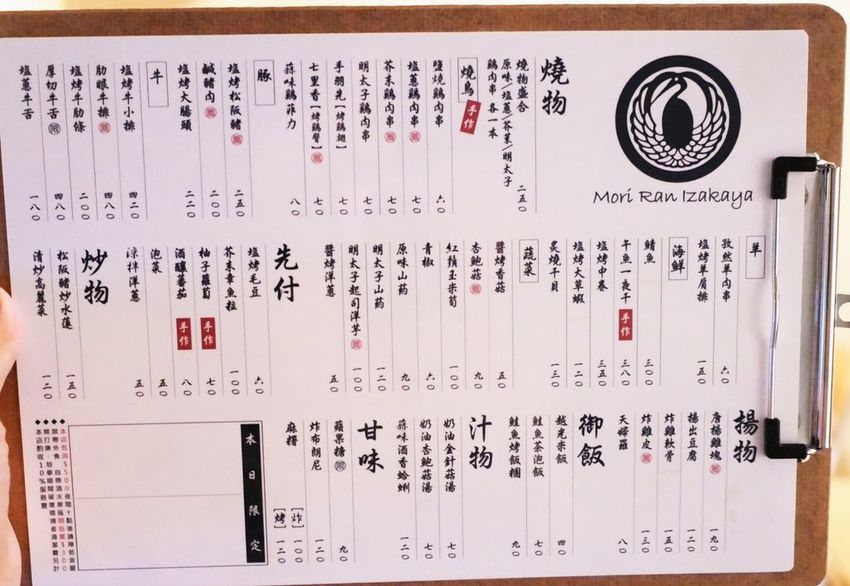 Mori Ran Izakaya
燒物
燒物盛合
原味/塩蔥/芥茉/明太子
鷄肉串 各一本 二五〇
燒鳥 手作
鹽燒鷄肉串 六〇
塩蔥鷄肉串 七〇
芥末鷄肉串 七〇
明太子鷄肉串 七〇
手羽先[烤鷄翅] 七〇
七里香[烤鷄臀] 七〇
蒜味鷄菲力 八〇
豚
塩烤松阪豬 二五〇
鹹豬肉 二〇〇
塩烤大腸頭 二二〇
牛
塩烤牛小排 四二〇
肋眼牛排 四八〇
塩烤牛肋條 二〇〇
厚切牛舌 四八〇
塩蔥牛舌 一八〇
羊
孜然羊肉串 六〇
塩烤羊肩排 一五〇
海鮮
鯖魚 三〇〇
午魚一夜干 手作 三八〇
塩烤中卷 三五〇
塩烤大草蝦 一二〇
炙燒干貝 一三〇
蔬菜
醬烤香菇 五〇
杏鮑菇 九〇
紅鬚玉米筍 一〇〇
青椒 六〇
原味山葯 九〇
明太子山葯 一二〇
明太子起司洋芋 一〇〇
醬烤洋蔥 五〇
先付
塩烤毛豆 六〇
芥末章魚粒 一〇〇
柚子蘿蔔 手作 七〇
酒釀番茄 手作 八〇
泡菜 五〇
涼拌洋蔥 五〇
炒物
松阪豬炒水蓮 一五〇
清炒高麗菜 一二〇
揚物
唐揚雞塊 一九〇
揚出豆腐 一二〇
炸雞軟骨 一五〇
炸雞皮 一三〇
天婦羅 八〇
御飯
越光米飯 四〇
鮭魚茶泡飯 七〇
鮭魚烤飯糰 九〇
汁物
奶油金針菇湯 七〇
奶油杏鮑菇湯 七〇
蒜味酒香蛤蜊 一二〇
甘味
蘋果糖 九〇
炸布朗尼 一〇〇
麻糬 [炸] 一〇〇
[烤] 一二〇
本日限定